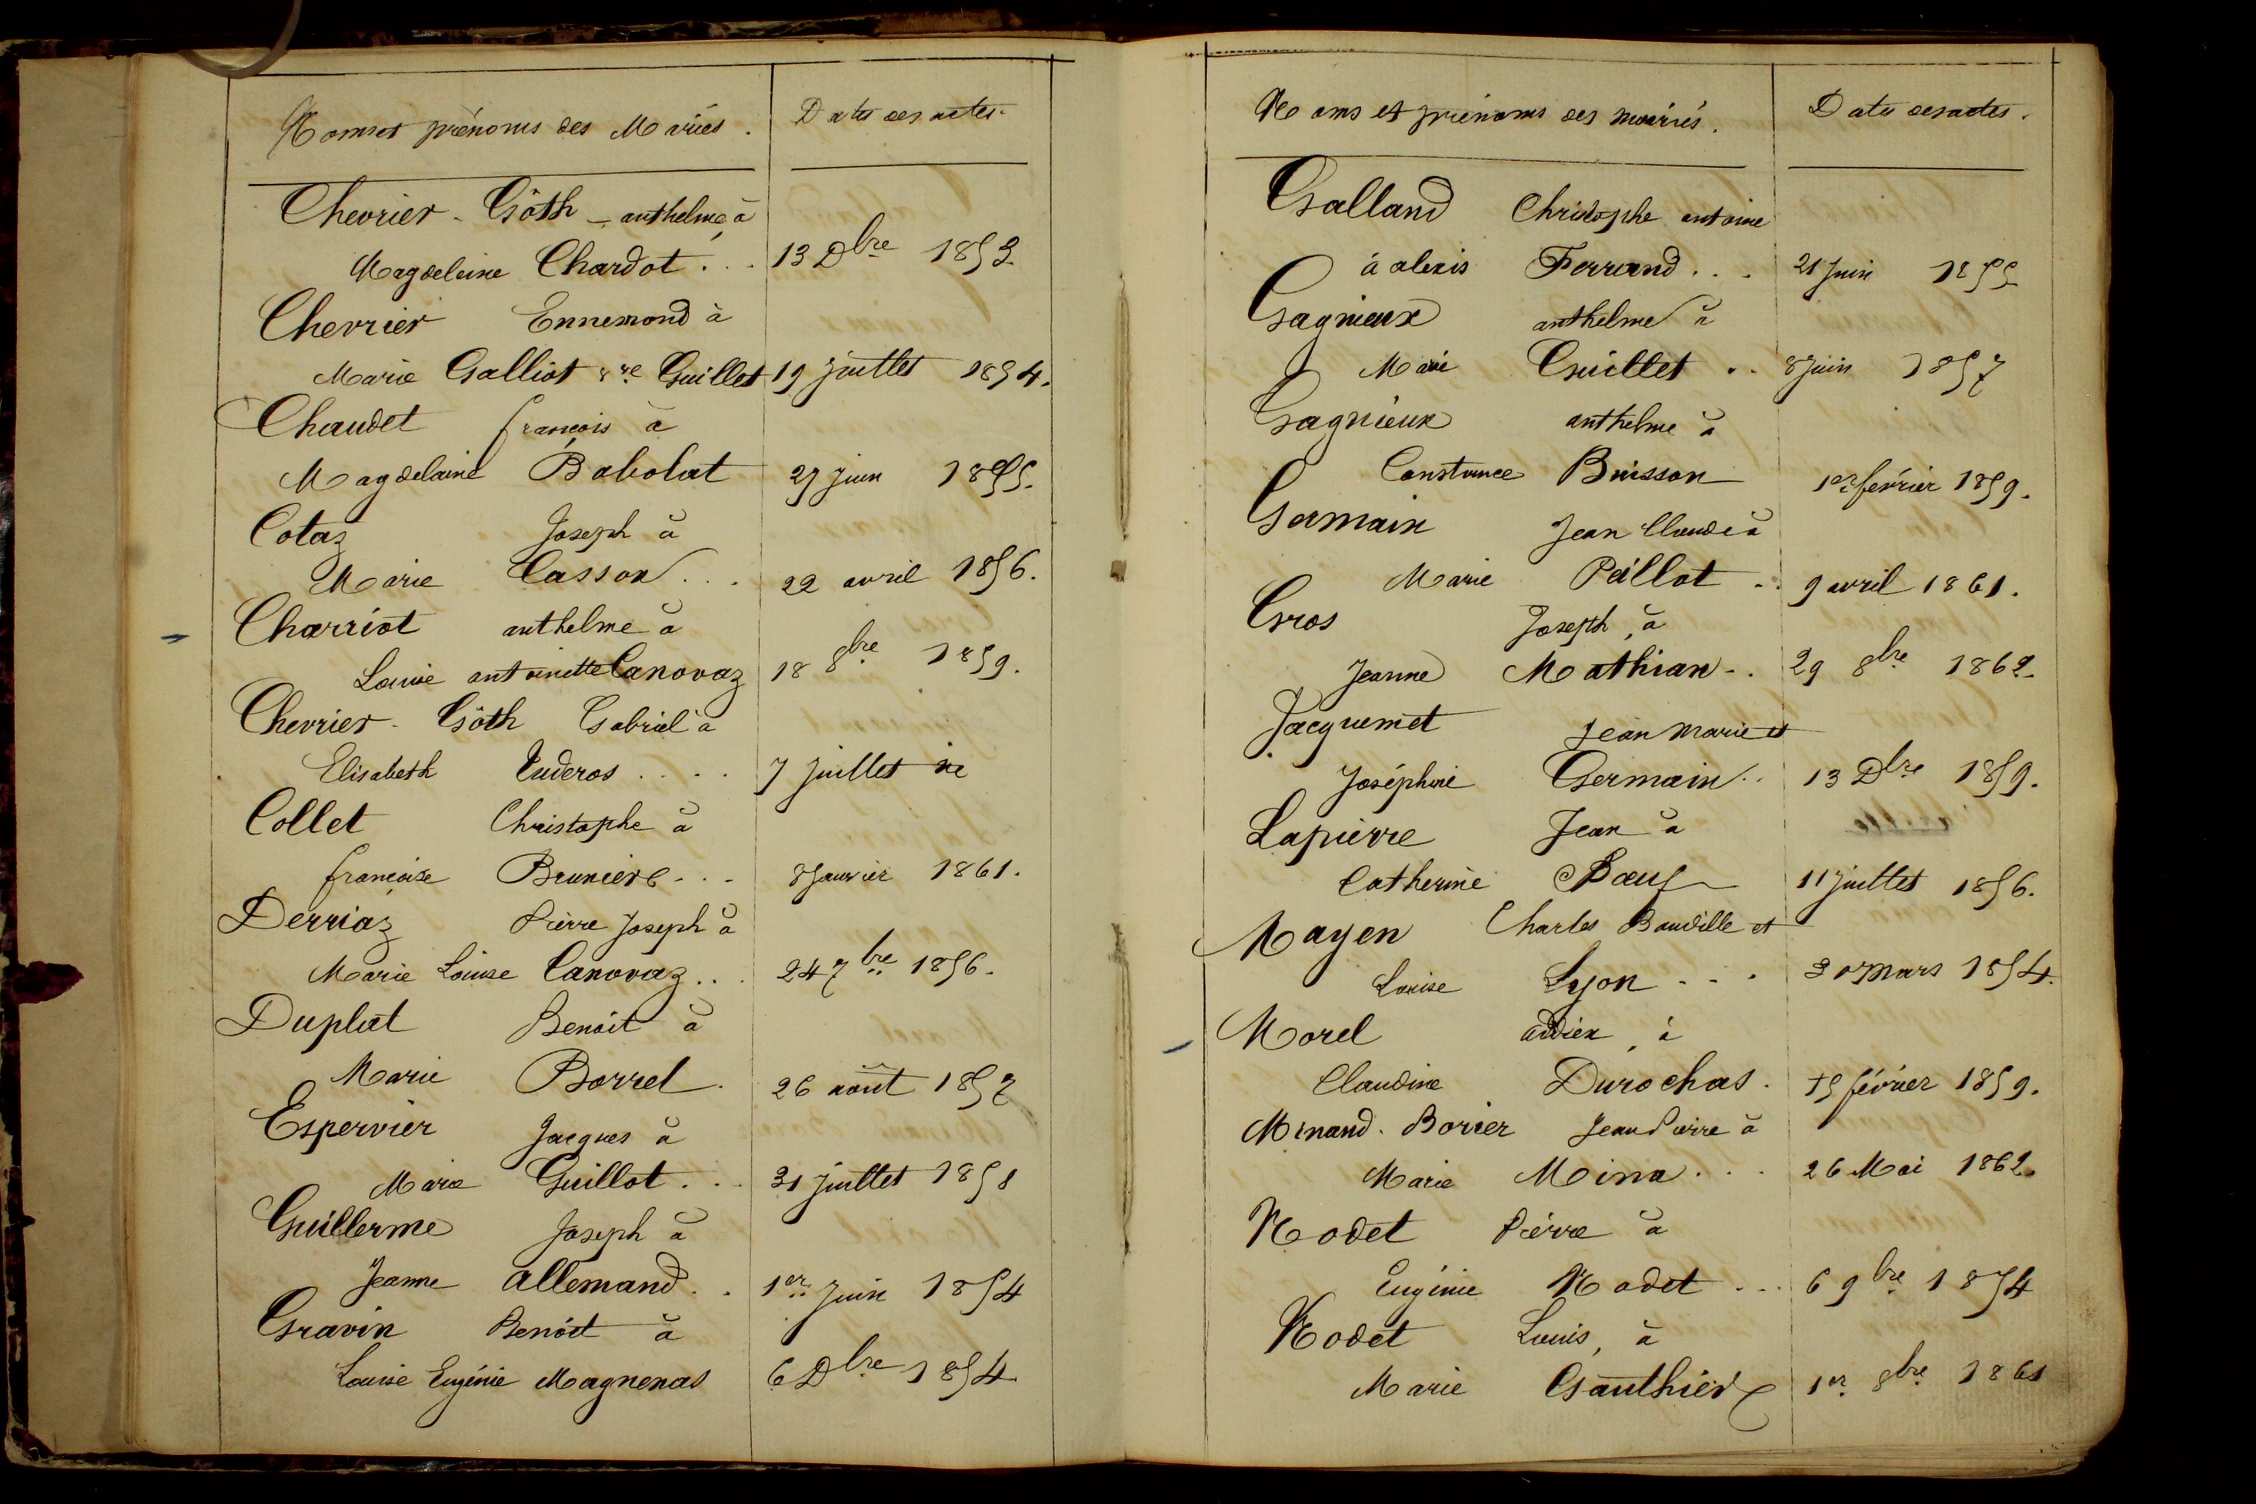 Noms et prénoms des Mariés. Dates des actes.
Chevrier - Gôth - anthelme, à
Magdeleine Chardot . . . 13 Dbre 1853.
Chevrier Ennemond à
Marie Galliot vve Guillet 19 juillet 1854.
Chaudet françois à
Magdelaine Babolat 27 juin 1855.
Cotaz Joseph à
Marie Casson . . . 22 avril 1856.
Charriot anthelme à
Louise antoinette Canovaz 18 8bre 1859.
Chevrier - Gôth Gabriel à
Elisabeth Tuderos . . . . 7 juillet
Collet Christophe à
françoise Brunière . . . 8 Janvier 1861.
Derriaz Pierre Joseph à
Marie Louise Canovaz . . . 24 7bre 1856.
Duplat Benoit à
Marie Borrel . 26 août 1857
Espervier Jacques à
Marie Guillot . . . 31 juillet 1858
Guillerme Joseph à
Jeanne allemand . . 1er Juin 1854
Gravin Benoit à
Louise Eugénie Magnenas 6 Dbre 1854
Noms et prénoms des mariés. Dates des actes.
Galland Christophe antoine
à alexis Ferrand . . . 21 Juin 1855
Gagnieux anthelme à
Marie Guillet . . 8 Juin 1857
Gagnieux anthelme à
Constance Buisson 1er février 1859.
Germain Jean Claude à
Marie Peillot . . 9 avril 1861.
Gros Joseph, à
Jeanne Mathian - . 29 8bre 1862.
Jacquemet Jean Marie et
Joséphine Germain . . 13 Dbre 1859.
Lapierre Jean à
Catherine Bœuf 11 juillet 1856.
Mayen Charles Baudille et
Louise Lyon - - . 30 Mars 1854.
Morel à
Claudine Durochas . 15 février 1859.
Minand - Borier Jean Pierre à
Marie Mina . . . 26 Mai 1862.
Nodet Pierre à
Eugénie Nodet . . . 6 9bre 1854
Nodet Louis, à
Marie Gauthier 1er 8bre 1861